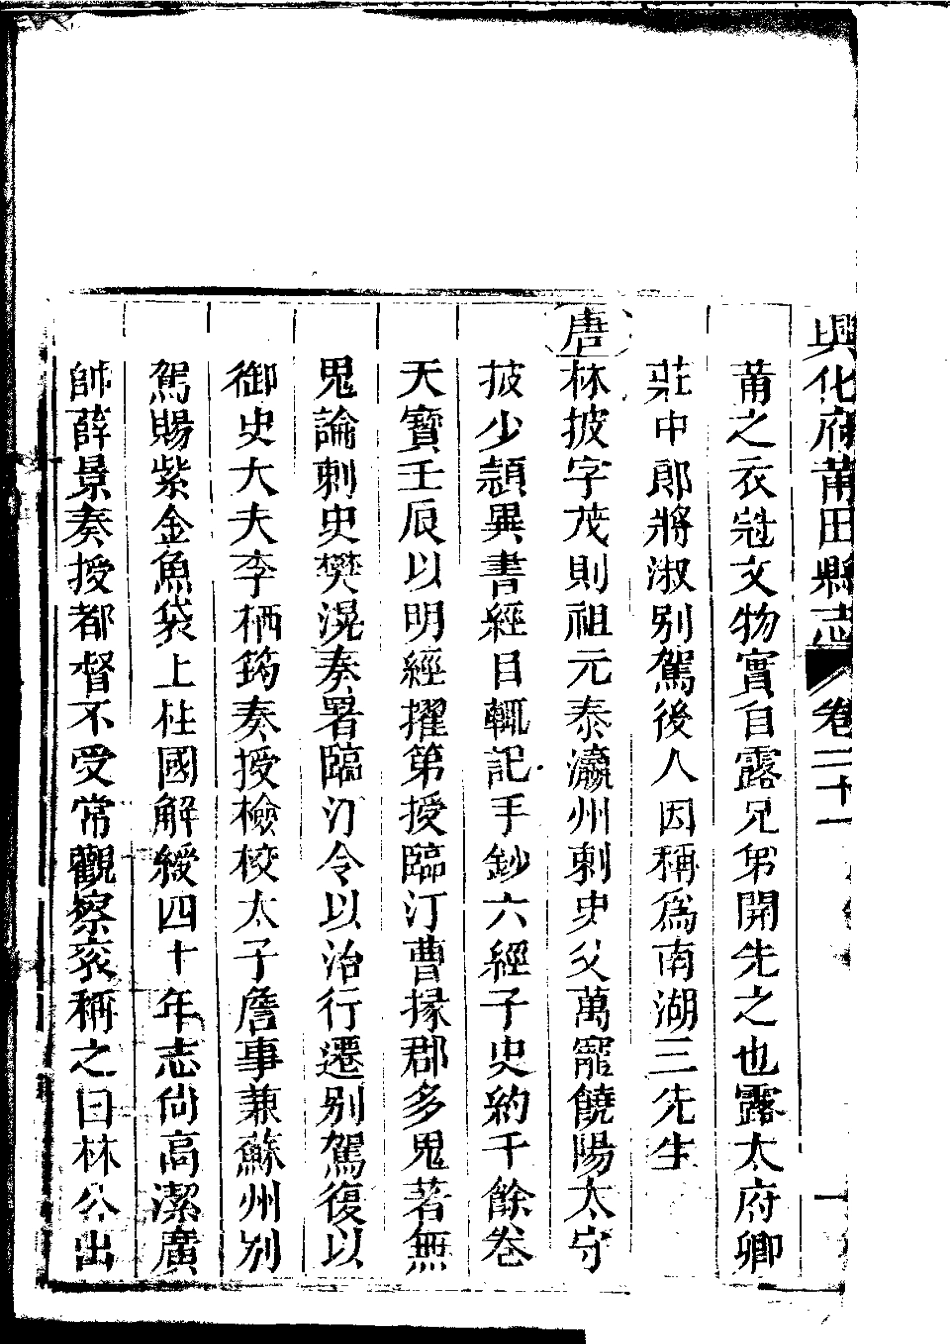 興化府莆田縣志 卷二十一
莆之衣冠文物實自露兄弟開先之也露太府卿
莊中郎將淑别駕後人因稱爲南湖三先生
唐林披字茂則祖元泰瀛州刺史父萬寵饒陽太守
披少穎異書經目輒記手鈔六經子史約千餘卷
天寶壬辰以明經擢第授臨汀曹掾郡多鬼著無
鬼論刺史樊滉奏署臨汀令以治行遷别駕復以
御史大夫李栖筠奏授檢校太子詹事兼蘇州别
駕賜紫金魚袋上柱國解綬四十年志尚高潔廣
帥薛景奏授都督不受常觀察衮稱之曰林公出